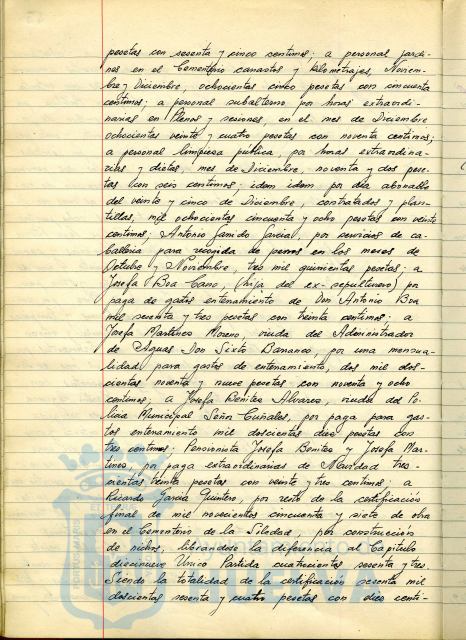 pesetas con sesenta y cinco centimos; a personal jardi-
nes en el Cementerio canastos y kilometrajes, Noviem-
bre y Diciembre, ochocientas cinco pesetas con cincuenta
centimos; a personal subalterno por horas extraordi-
narias en Plenos y sesiones, en el mes de Diciembre
ochocientas veinte y cuatro pesetas con noventa centimos;
a personal limpieza pública, por horas extraordina-
rias y dietas, mes de Diciembre, noventa y dos pese-
tas con seis centimos; idem idem por dia abonable
del veinte y cinco de Diciembre, contratados y plan-
tillas, mil ochocientas cincuenta y ocho pesetas con veinte
centimos; Antonio Garrido Garcia, por servicios de ca-
balleria para recogida de perros en los meses de
Octubre y Noviembre, tres mil quinientas pesetas; a
Josefa Boa Cano, (hija del ex-sepulturero) por
paga de gastos enterramiento de Don Antonio Boa
mil sesenta y tres pesetas con treinta centimos; a
Josefa Martinez Moreno viuda del Administrador
de Aguas Don Sixto por una mensua-
lidad para gastos de enterramiento, dos mil dos-
cientas noventa y nueve pesetas con noventa y ocho
centimos; a Josefa Benitez Alvarez, viuda del Po-
licia Municipal Señor por paga para gas-
tos enterramiento mil doscientas diez pesetas con
tres centimos; Pensionista Josefa Benitez y Josefa Mar-
tinez, por paga extraordinarias de Navidad tres-
cientas treinta pesetas con veinte y tres centimos; a
Ricardo Garcia Quintero, por resto de la certificación
final de mil novecientos cincuenta y siete de obra
en el Cementerio de la Soledad, y por construcción
de nichos, librandose la diferencia al Capitulo
diecinueve Unico Partida cuatrocientas sesenta y tres
Siendo la totalidad de la certificación sesenta mil
doscientas sesenta y cuatro pesetas con diez centi-